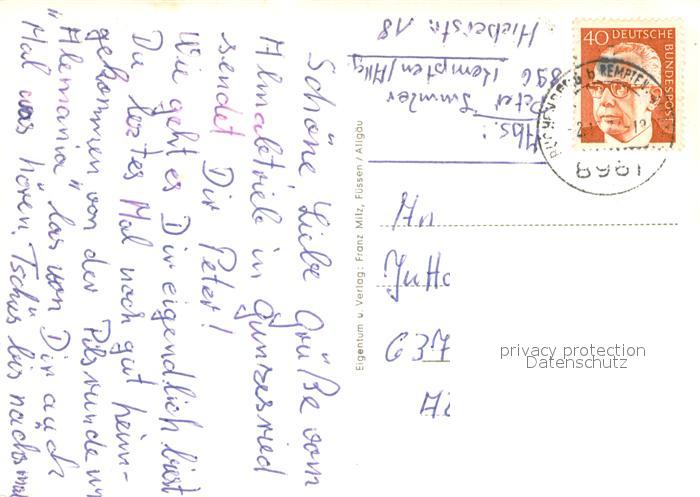 Schöne Liebe Grüße vom
Almabtrieb in Gunzesried
sendet Dir Peter!
Wie geht es Dir eigendlich bist
Du leztes Mal noch gut heim-
gekommen von der Pilsrunde im
"Alemania" las von Dir auch
Mal was hören. Tschüs bis nachsmal
Abs.: Peter
896 Kempten/Allg.
Hieberstr. 18
Eigentum u. Verlag: Franz Milz, Füssen/Allgäu
40 DEUTSCHE
BUNDESPOST
b KEMPTEN
8961
An
Jutta
637
privacy protection
Datenschutz